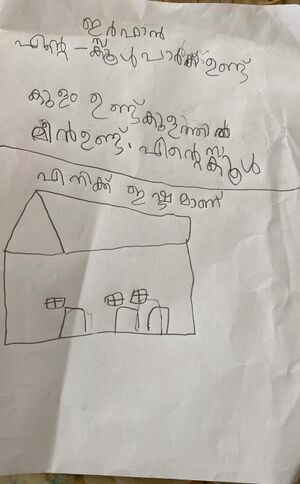 ഇർഫാൻ
എന്റെ സ്ക്കൂൾ പാർക്ക് ഉണ്ട്
കുളം ഉണ്ട് കുളത്തിൽ
മീൻ ഉണ്ട്. എന്റെ സ്ക്കൂൾ
എനിക്ക് ഇഷ്ടമാണ്